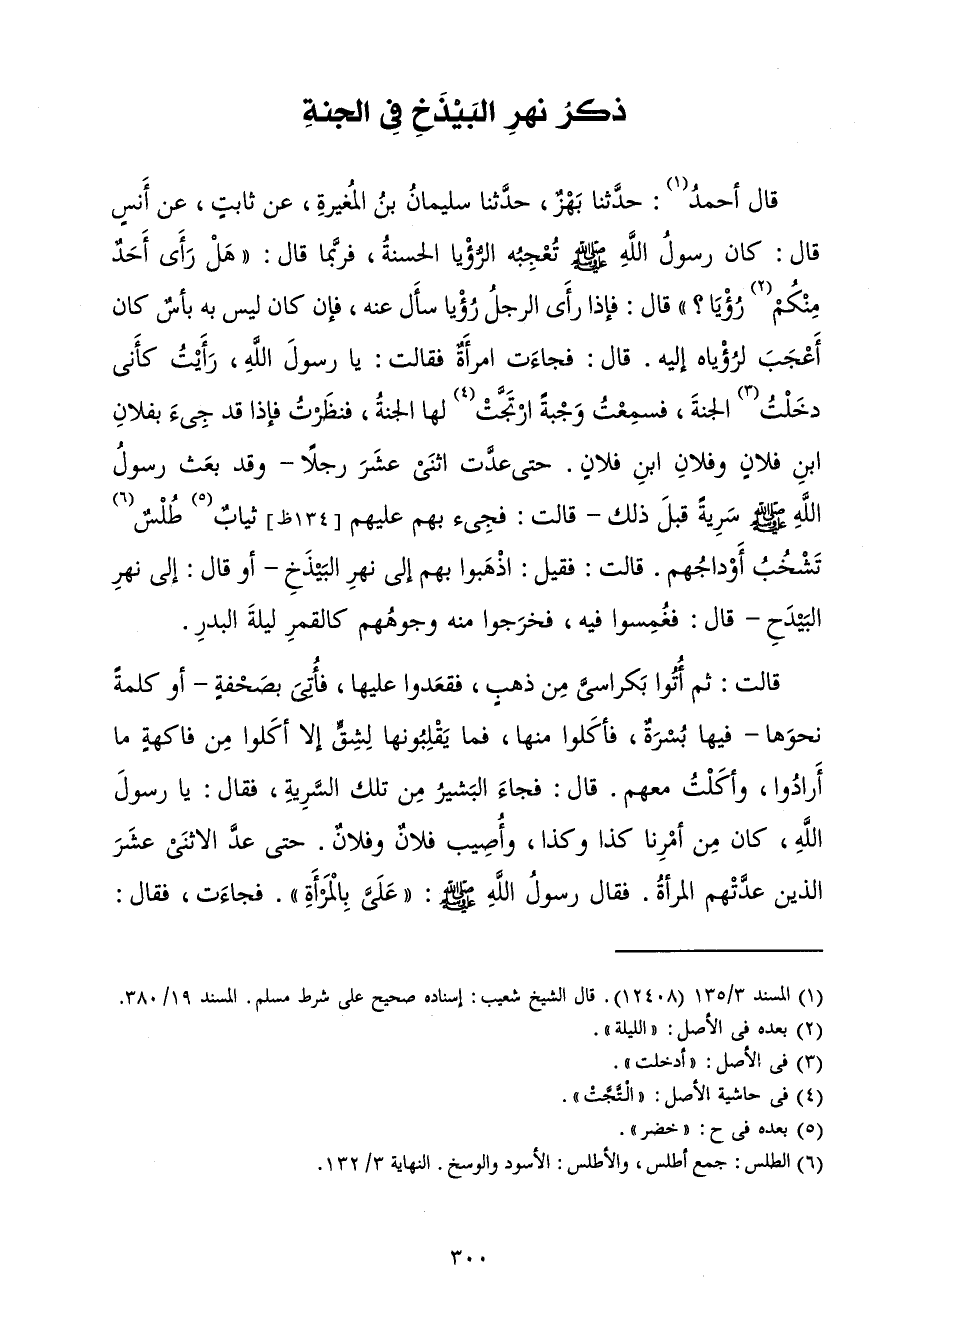 ذكرُ نهرِ البَيْذَخِ فى الجنةِ
قال أحمدُ(١) : حدَّثنا بَهْزٌ ، حدَّثنا سليمانُ بنُ المُغيرةِ ، عن ثابتٍ ، عن أَنسٍ
قال : كان رسولُ اللَّهِ ﷺ تُعْجِبُه الرُّؤْيا الحسنةُ ، فربَّما قال : « هَلْ رَأَى أَحَدٌ
مِنْكُمْ(٢) رُؤْيَا ؟ » قال : فإذا رأَى الرجلُ رُؤْيا سأَل عنه ، فإن كان ليس به بأسٌ كان
أَعْجَبَ لرُؤْياه إليه . قال : فجاءَت امرأَةٌ فقالت : يا رسولَ اللَّهِ ، رَأَيْتُ كأَنى
دخَلْتُ(٣) الجنةَ ، فسمِعْتُ وَجْبةً ارْتَجَّتْ(٤) لها الجنةُ ، فنظَرْتُ فإذا قد جِىءَ بفلانِ
ابنِ فلانٍ وفلانِ ابنِ فلانٍ . حتى عدَّت اثنَىْ عشَرَ رجلًا – وقد بعَث رسولُ
اللَّهِ ﷺ سَرِيةً قبلَ ذلك – قالت : فجِىء بهم عليهم [١٣٤ظ] ثيابٌ(٥) طُلْسٌ(٦)
تَشْخُبُ أَوْداجُهم . قالت : فقيل : اذْهَبوا بهم إلى نهرِ البَيْذَخِ – أو قال : إلى نهرِ
البَيْدَحِ – قال : فغُمِسوا فيه ، فخرَجوا منه وجوهُهم كالقمرِ ليلةَ البدرِ .
قالت : ثم أُتُوا بَكراسىَّ مِن ذهبٍ ، فقعَدوا عليها ، فأُتِىَ بصَحْفةٍ – أو كلمةً
نحوَها – فيها بُسْرَةٌ ، فأكَلوا منها ، فما يَقْلِبُونها لِشِقٍّ إلا أكَلوا مِن فاكهةٍ ما
أَرادُوا ، وأكَلْتُ معهم . قال : فجاءَ البَشيرُ مِن تلك السَّرِيةِ ، فقال : يا رسولَ
اللَّهِ ، كان مِن أمْرِنا كذا وكذا ، وأُصِيب فلانٌ وفلانٌ . حتى عدَّ الاثنَىْ عشَرَ
الذين عدَّتْهم المرأةُ . فقال رسولُ اللَّهِ ﷺ : « عَلَىَّ بِالْمَرْأَةِ » . فجاءَت ، فقال :
(١) المسند ١٣٥/٣ (١٢٤٠٨) . قال الشيخ شعيب : إسناده صحيح على شرط مسلم . المسند ١٩/ ٣٨٠.
(٢) بعده فى الأصل : « الليلة » .
(٣) فى الأصل : « أدخلت » .
(٤) فى حاشية الأصل : « الْتُجَّتْ » .
(٥) بعده فى ح : « خضر » .
(٦) الطلس : جمع أطلس ، والأطلس : الأسود والوسخ . النهاية ٣/ ١٣٢.
٣٠٠